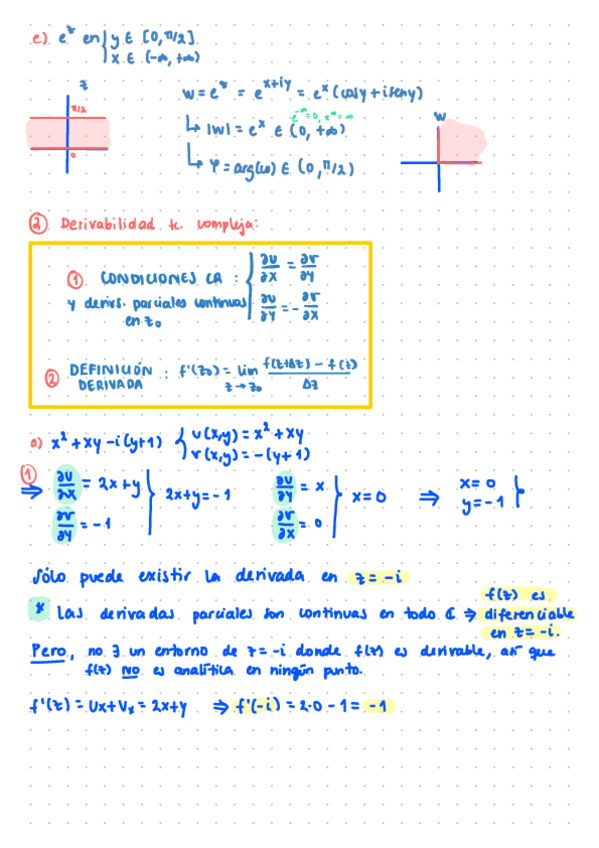 e) e^z en { y ∈ [0, π/2]
x ∈ (-∞, +∞)
z
π/2
0
w = e^z = e^{x+iy} = e^x (cosy + iseny)
e^{-∞}=0, e^{∞}=∞
↳ |w| = e^x ∈ (0, +∞)
↳ φ = arg(w) ∈ (0, π/2)
w
② Derivabilidad fc. compleja:
① CONDICIONES CR : { ∂u/∂x = ∂v/∂y
y derivs. parciales continuas
en z₀
∂u/∂y = - ∂v/∂x
② DEFINICIÓN DERIVADA : f'(z₀) = lim_{z→z₀} (f(z+Δz) - f(z))/Δz
a) x² + xy - i(y+1) { u(x,y) = x² + xy
v(x,y) = -(y+1)
① ⇒ ∂u/∂x = 2x+y
∂v/∂y = -1
} 2x+y = -1
∂u/∂y = x
∂v/∂x = 0
} x = 0 ⇒ x = 0
y = -1 }
Sólo puede existir la derivada en z = -i
* Las derivadas parciales son continuas en todo ℂ ⇒ f(z) es
diferenciable
en z = -i.
Pero, no ∃ un entorno de z = -i donde f(z) es derivable, así que
f(z) NO es analítica en ningún punto.
f'(z) = Ux + Vx = 2x+y ⇒ f'(-i) = 2·0 - 1 = -1